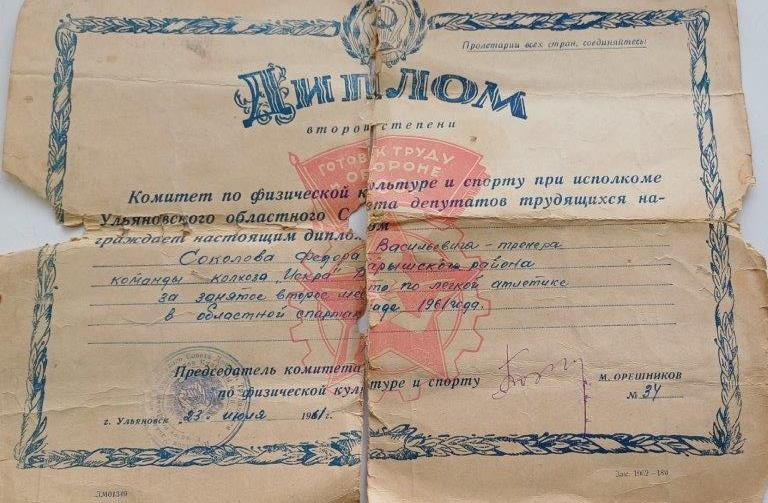 Пролетарии всех стран, соединяйтесь!
ДИПЛОМ
второй степени
ГОТОВ К ТРУДУ
ОБОРОНЕ
Комитет по физической культуре и спорту при исполкоме
Ульяновского областного Совета депутатов трудящихся на-
граждает настоящим дипломом
Соколова Федора Васильевича - тренера
команды колхоза „Искра"
за занятое второе место по легкой атлетике
в областной спартакиаде 1961 года.
Председатель комитета
по физической культуре и спорту
М. ОРЕШНИКОВ
№ 34
г. Ульяновск „23" июля 1961 г.
Зак. 1962—180
ЗМ01349